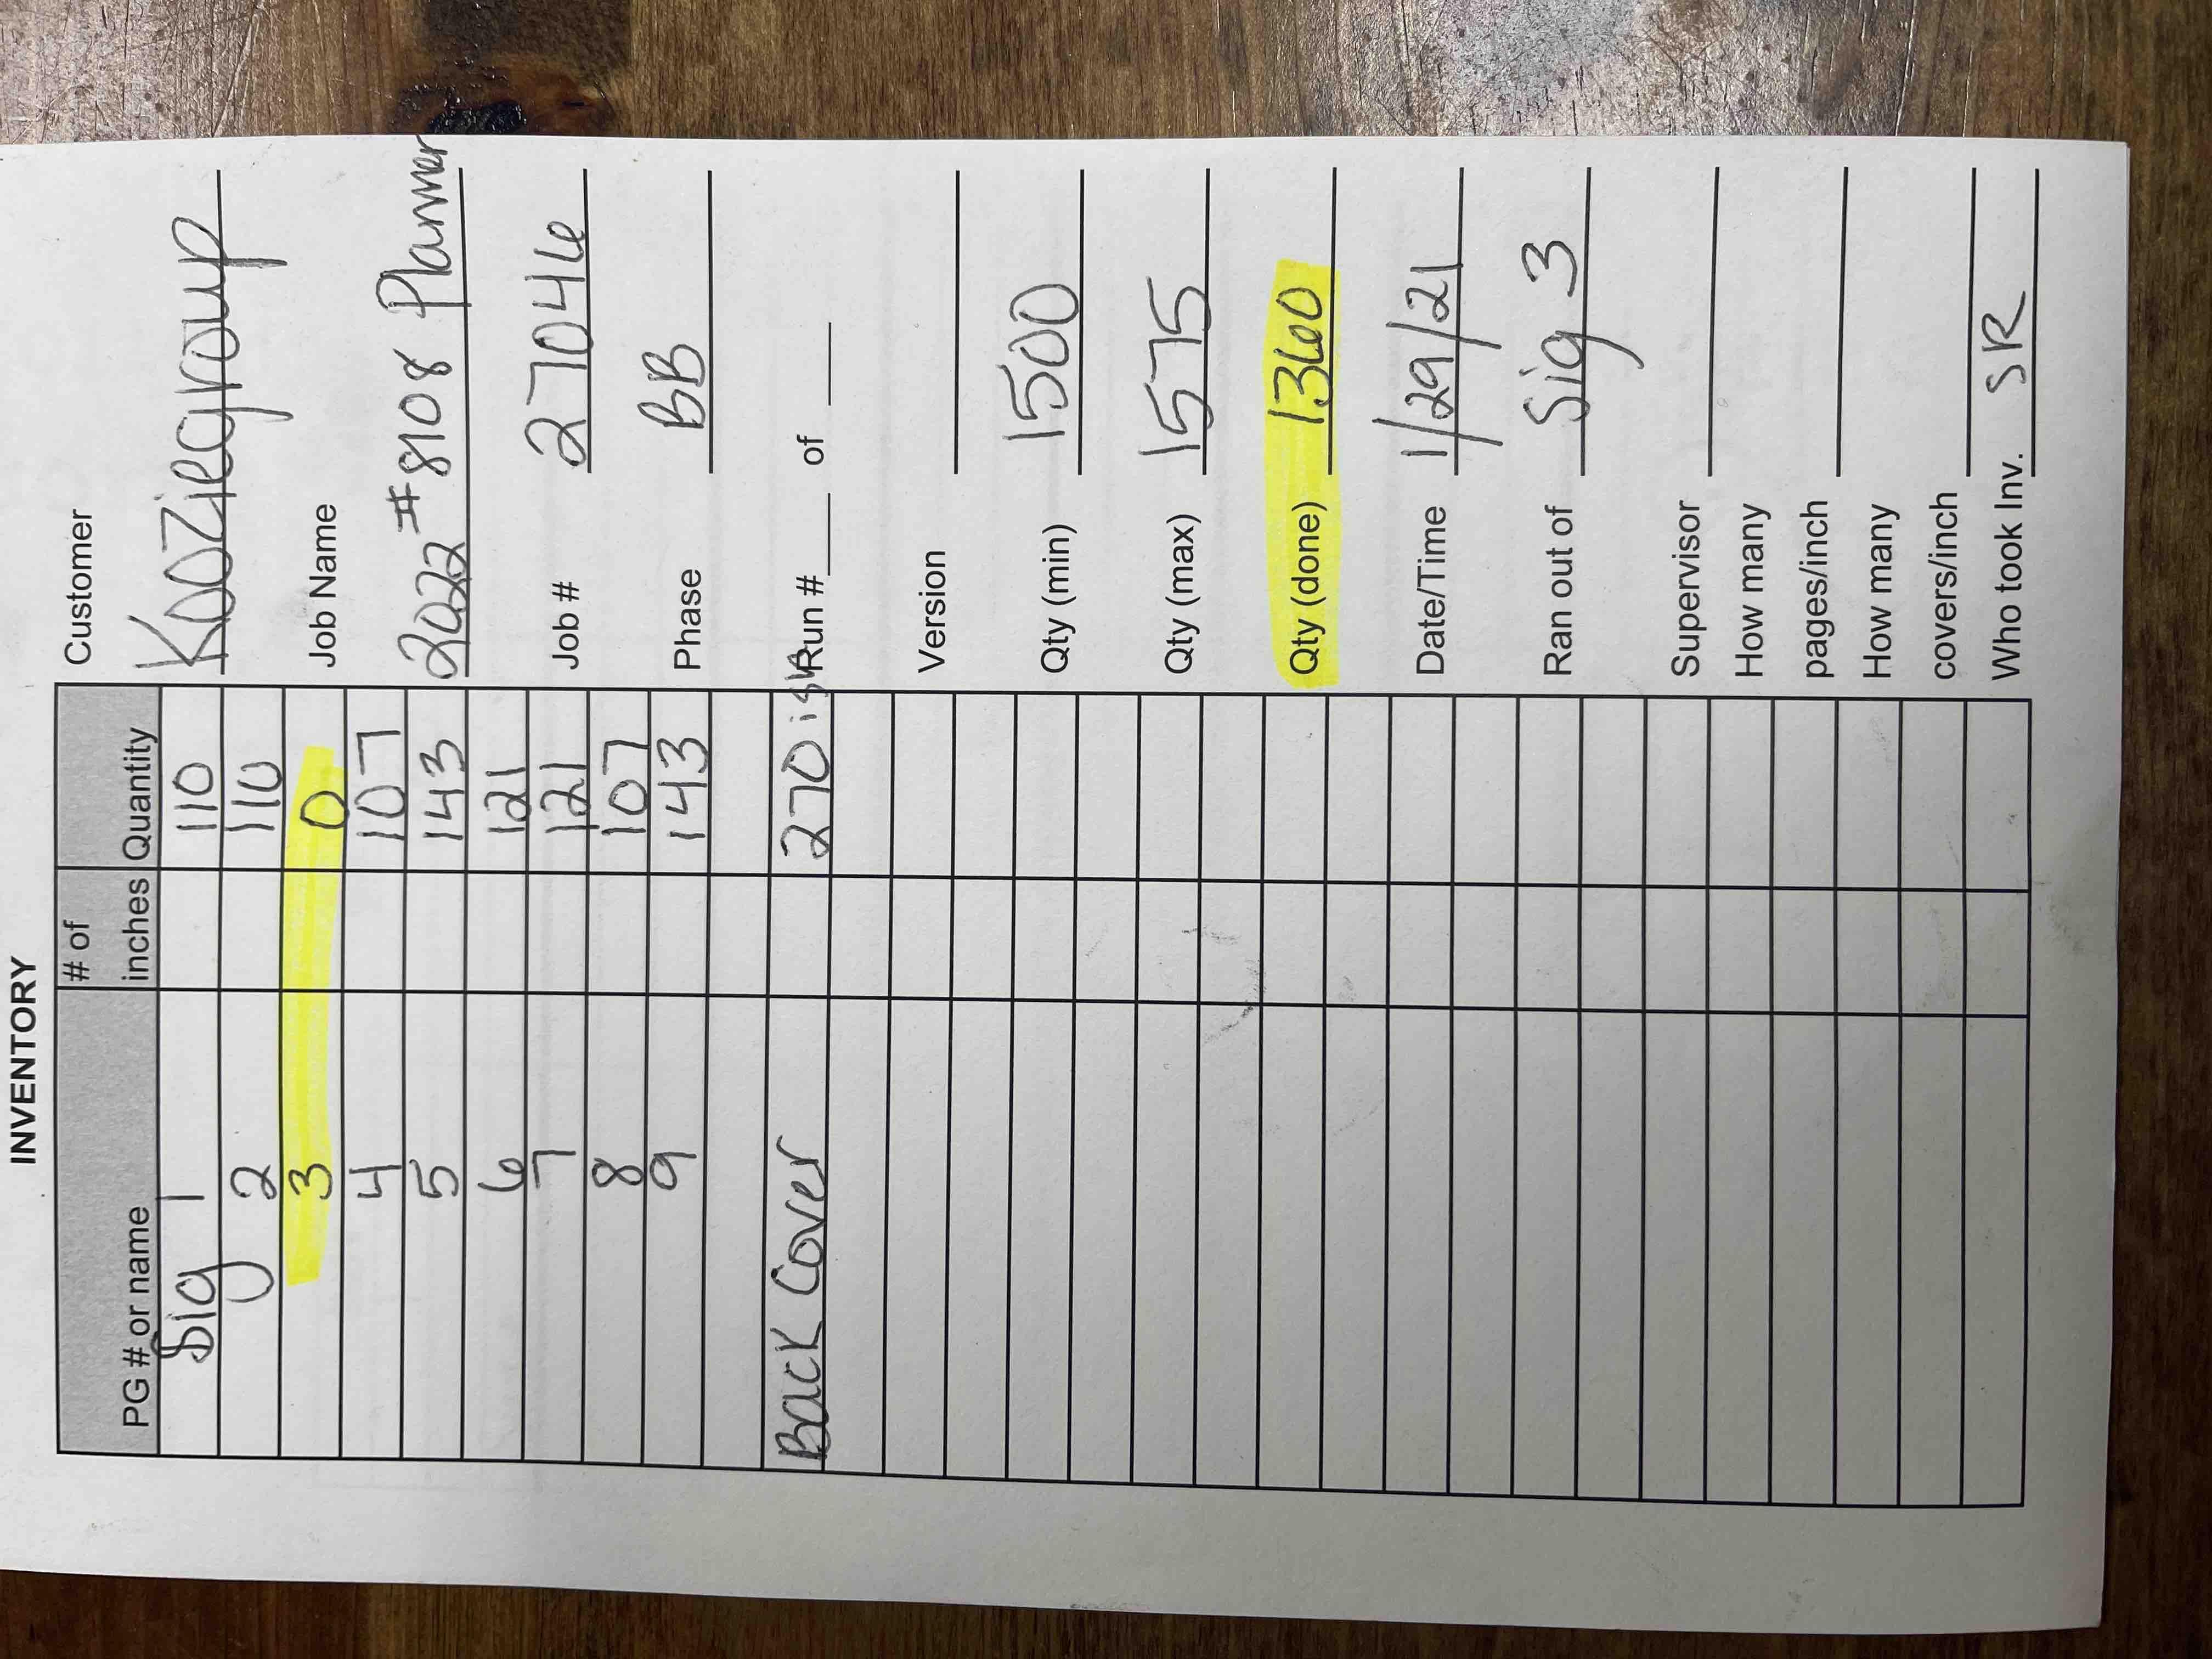 INVENTORY
PG # or name # of inches Quantity
Sig 1 110
2 110
3 0
4 107
5 143
6 121
7 121
8 107
9 143
Back Cover 270ish
Customer
Kooziegroup
Job Name
2022 #8108 Planner
Job # 27046
Phase BB
Run # ____ of ____
Version
Qty (min) 1500
Qty (max) 1575
Qty (done) 1360
Date/Time 1/29/21
Ran out of Sig 3
Supervisor
How many
pages/inch
How many
covers/inch
Who took Inv. SR